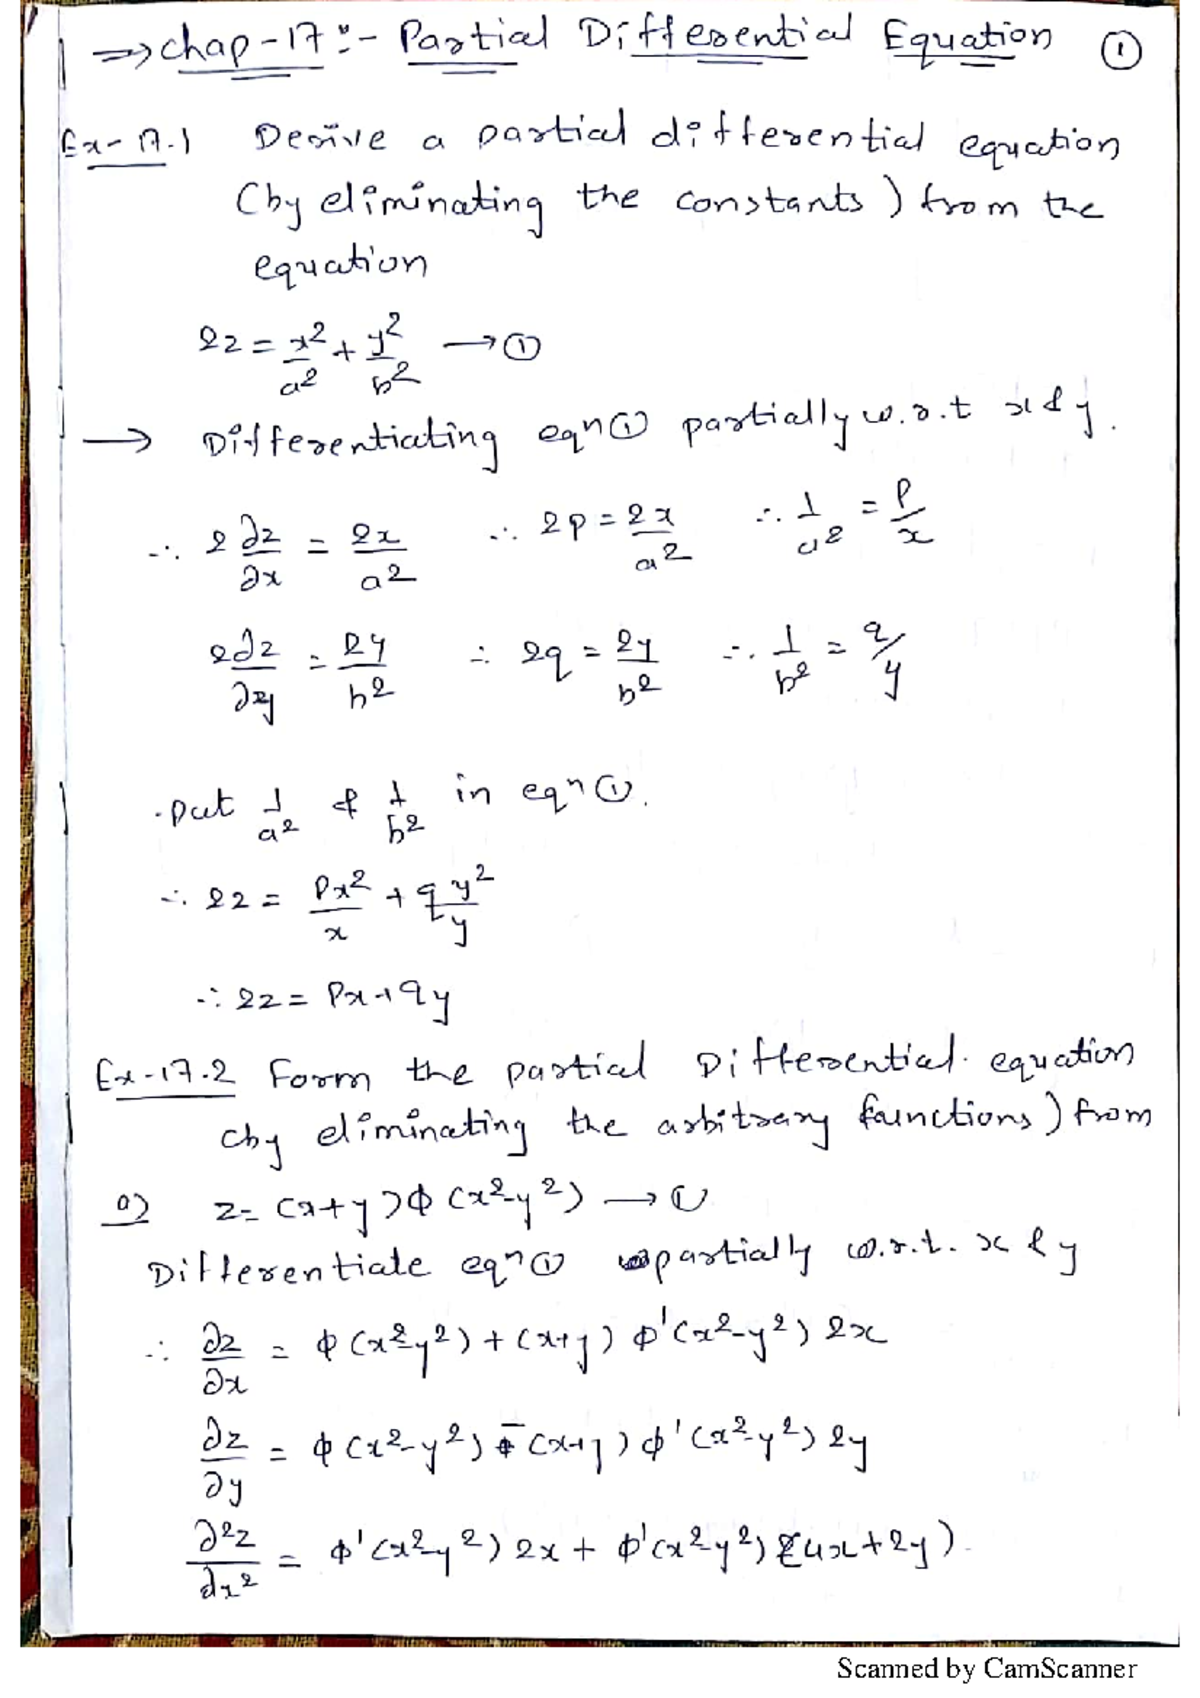 ⇒ Chap-17 :- Partial Differential Equation ①
Ex-17.1 Derive a partial differential equation
(by eliminating the constants) from the
equation
2z = x²/a² + y²/b² → ①
→ Differentiating eqⁿ① partially w.r.t x & y.
∴ 2 ∂z/∂x = 2x/a² ∴ 2p = 2x/a² ∴ 1/a² = P/x
2∂z/∂y = 2y/b² ∴ 2q = 2y/b² ∴ 1/b² = q/y
·Put 1/a² & 1/b² in eqⁿ①.
∴ 2z = Px²/x + q y²/y
∴ 2z = Px + qy
Ex-17.2 Form the partial Differential equation
(by eliminating the arbitrary functions) from
a) z = (x+y)ϕ(x²-y²) → ①
Differentiate eqⁿ① partially w.r.t. x & y
∴ ∂z/∂x = ϕ(x²-y²) + (x+y) ϕ'(x²-y²) 2x
∂z/∂y = ϕ(x²-y²) - (x+y) ϕ'(x²-y²) 2y
∂²z/∂x² = ϕ'(x²-y²) 2x + ϕ'(x²-y²) (4x+2y).
Scanned by CamScanner